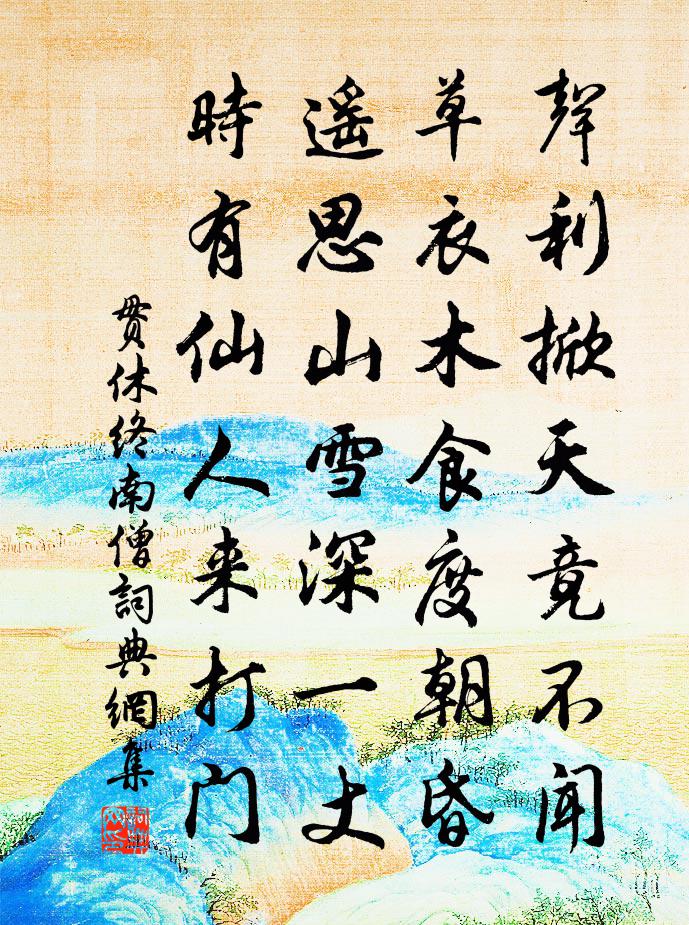 聲利掀天竟不聞
草衣木食度朝昏
遥思山雪深一丈
時有仙人来打门
贯休终南僧詞典網集